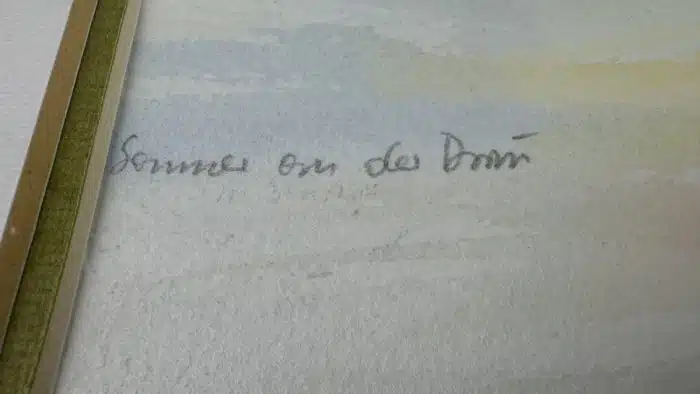 Sommer an der Drau